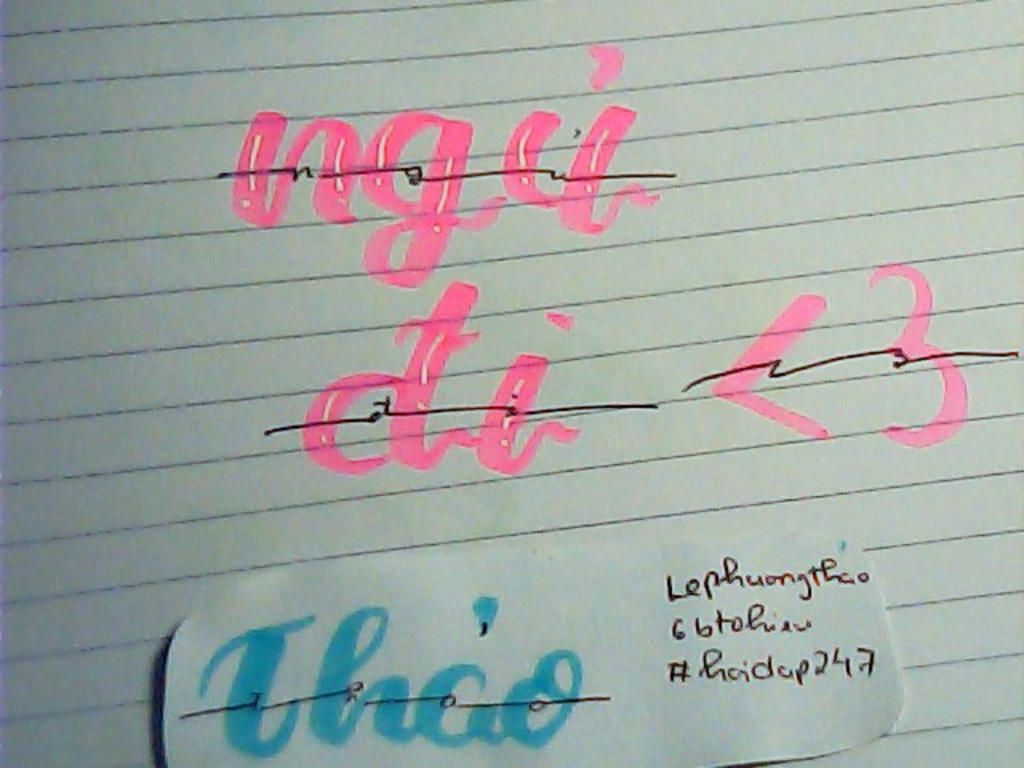 ngủ
đi <3
Thảo
Lephuongthảo
6btohieu
#hoidap247